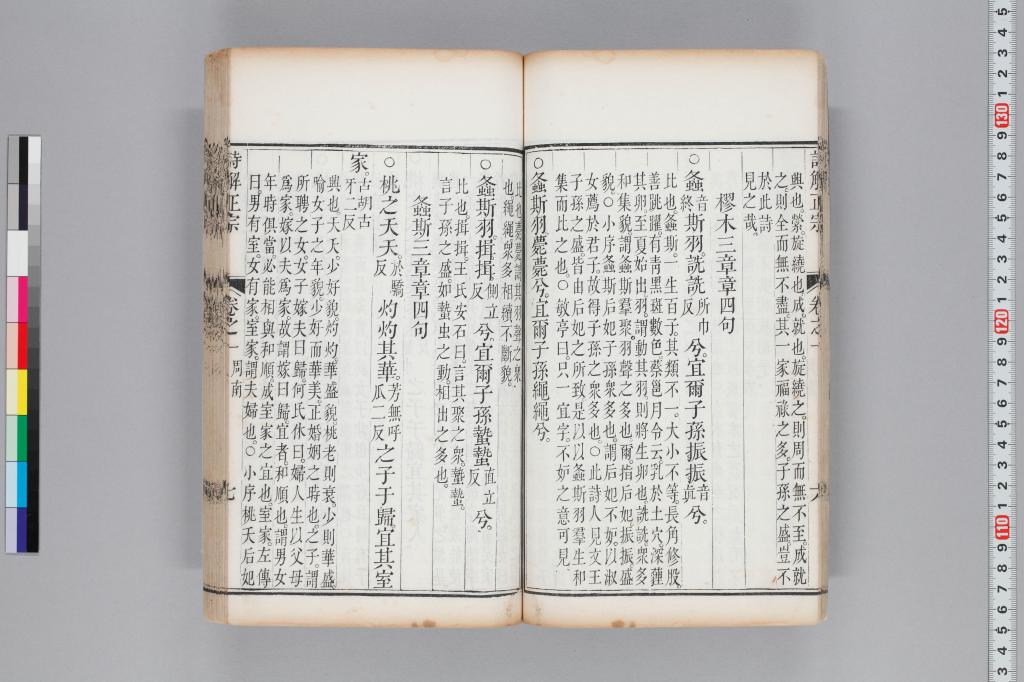 興也。縈、旋繞也。成、就也。旋繞之、則周而無不至。成就
之、則全而無不盡。其一家福祿之多、子孫之盛、豈不
於此詩
見之哉。
樛木三章章四句
○螽音終斯羽。詵詵所巾反兮。宜爾子孫振振音真兮。
比也。螽斯、一生百子、其類不一。大小不等、長角修股、
善跳躍、有青黑斑數色。蔡邕月令云、乳於土穴、深蓮
其卵、至夏始出羽、謂動其羽、則將生卵也。詵詵、衆多
和集貌。謂螽斯羣聚、羽聲之多也。爾指后妃。振振、盛
貌。○小序、螽斯后妃子孫衆多也。謂后妃不妒、以淑
女薦於君子、故得子孫之衆多也。○此詩人見文王
子孫之盛、皆由后妃之所致、是以以螽斯羽羣生和
集而比之也。○敏亭曰、只一宜字、不妒之意可見。
○螽斯羽。薨薨兮。宜爾子孫繩繩兮。
比也。薨薨、謂其羽聲之衆
也。繩繩、衆多相續不斷貌。
○螽斯羽。揖揖側立反兮。宜爾子孫蟄蟄直立反兮。
比也。揖揖、王氏安石曰、言其聚之衆。蟄蟄、
言子孫之盛、如蟄虫之動、相出之多也。
螽斯三章章四句
○桃之夭夭於驕反灼灼其華。芳無呼瓜二反之子于歸。宜其室
家。古胡古牙二反
興也。夭夭、少好貌。灼灼、華盛貌。桃老則衰、少則華盛、
喻女子之年貌少好而華美、正婚姻之時也。之子、謂
所聘之女。女子嫁夫曰歸。何氏休曰、婦人生以父母
爲家、嫁以夫爲家、故謂嫁曰歸。宜者和順也。謂男女
年時俱當、必能相與和順、成室家之宜也。室家、左傳
曰、男有室、女有家。室家、謂夫婦也。○小序、桃夭后妃
詩解正宗
卷之一
周南
七